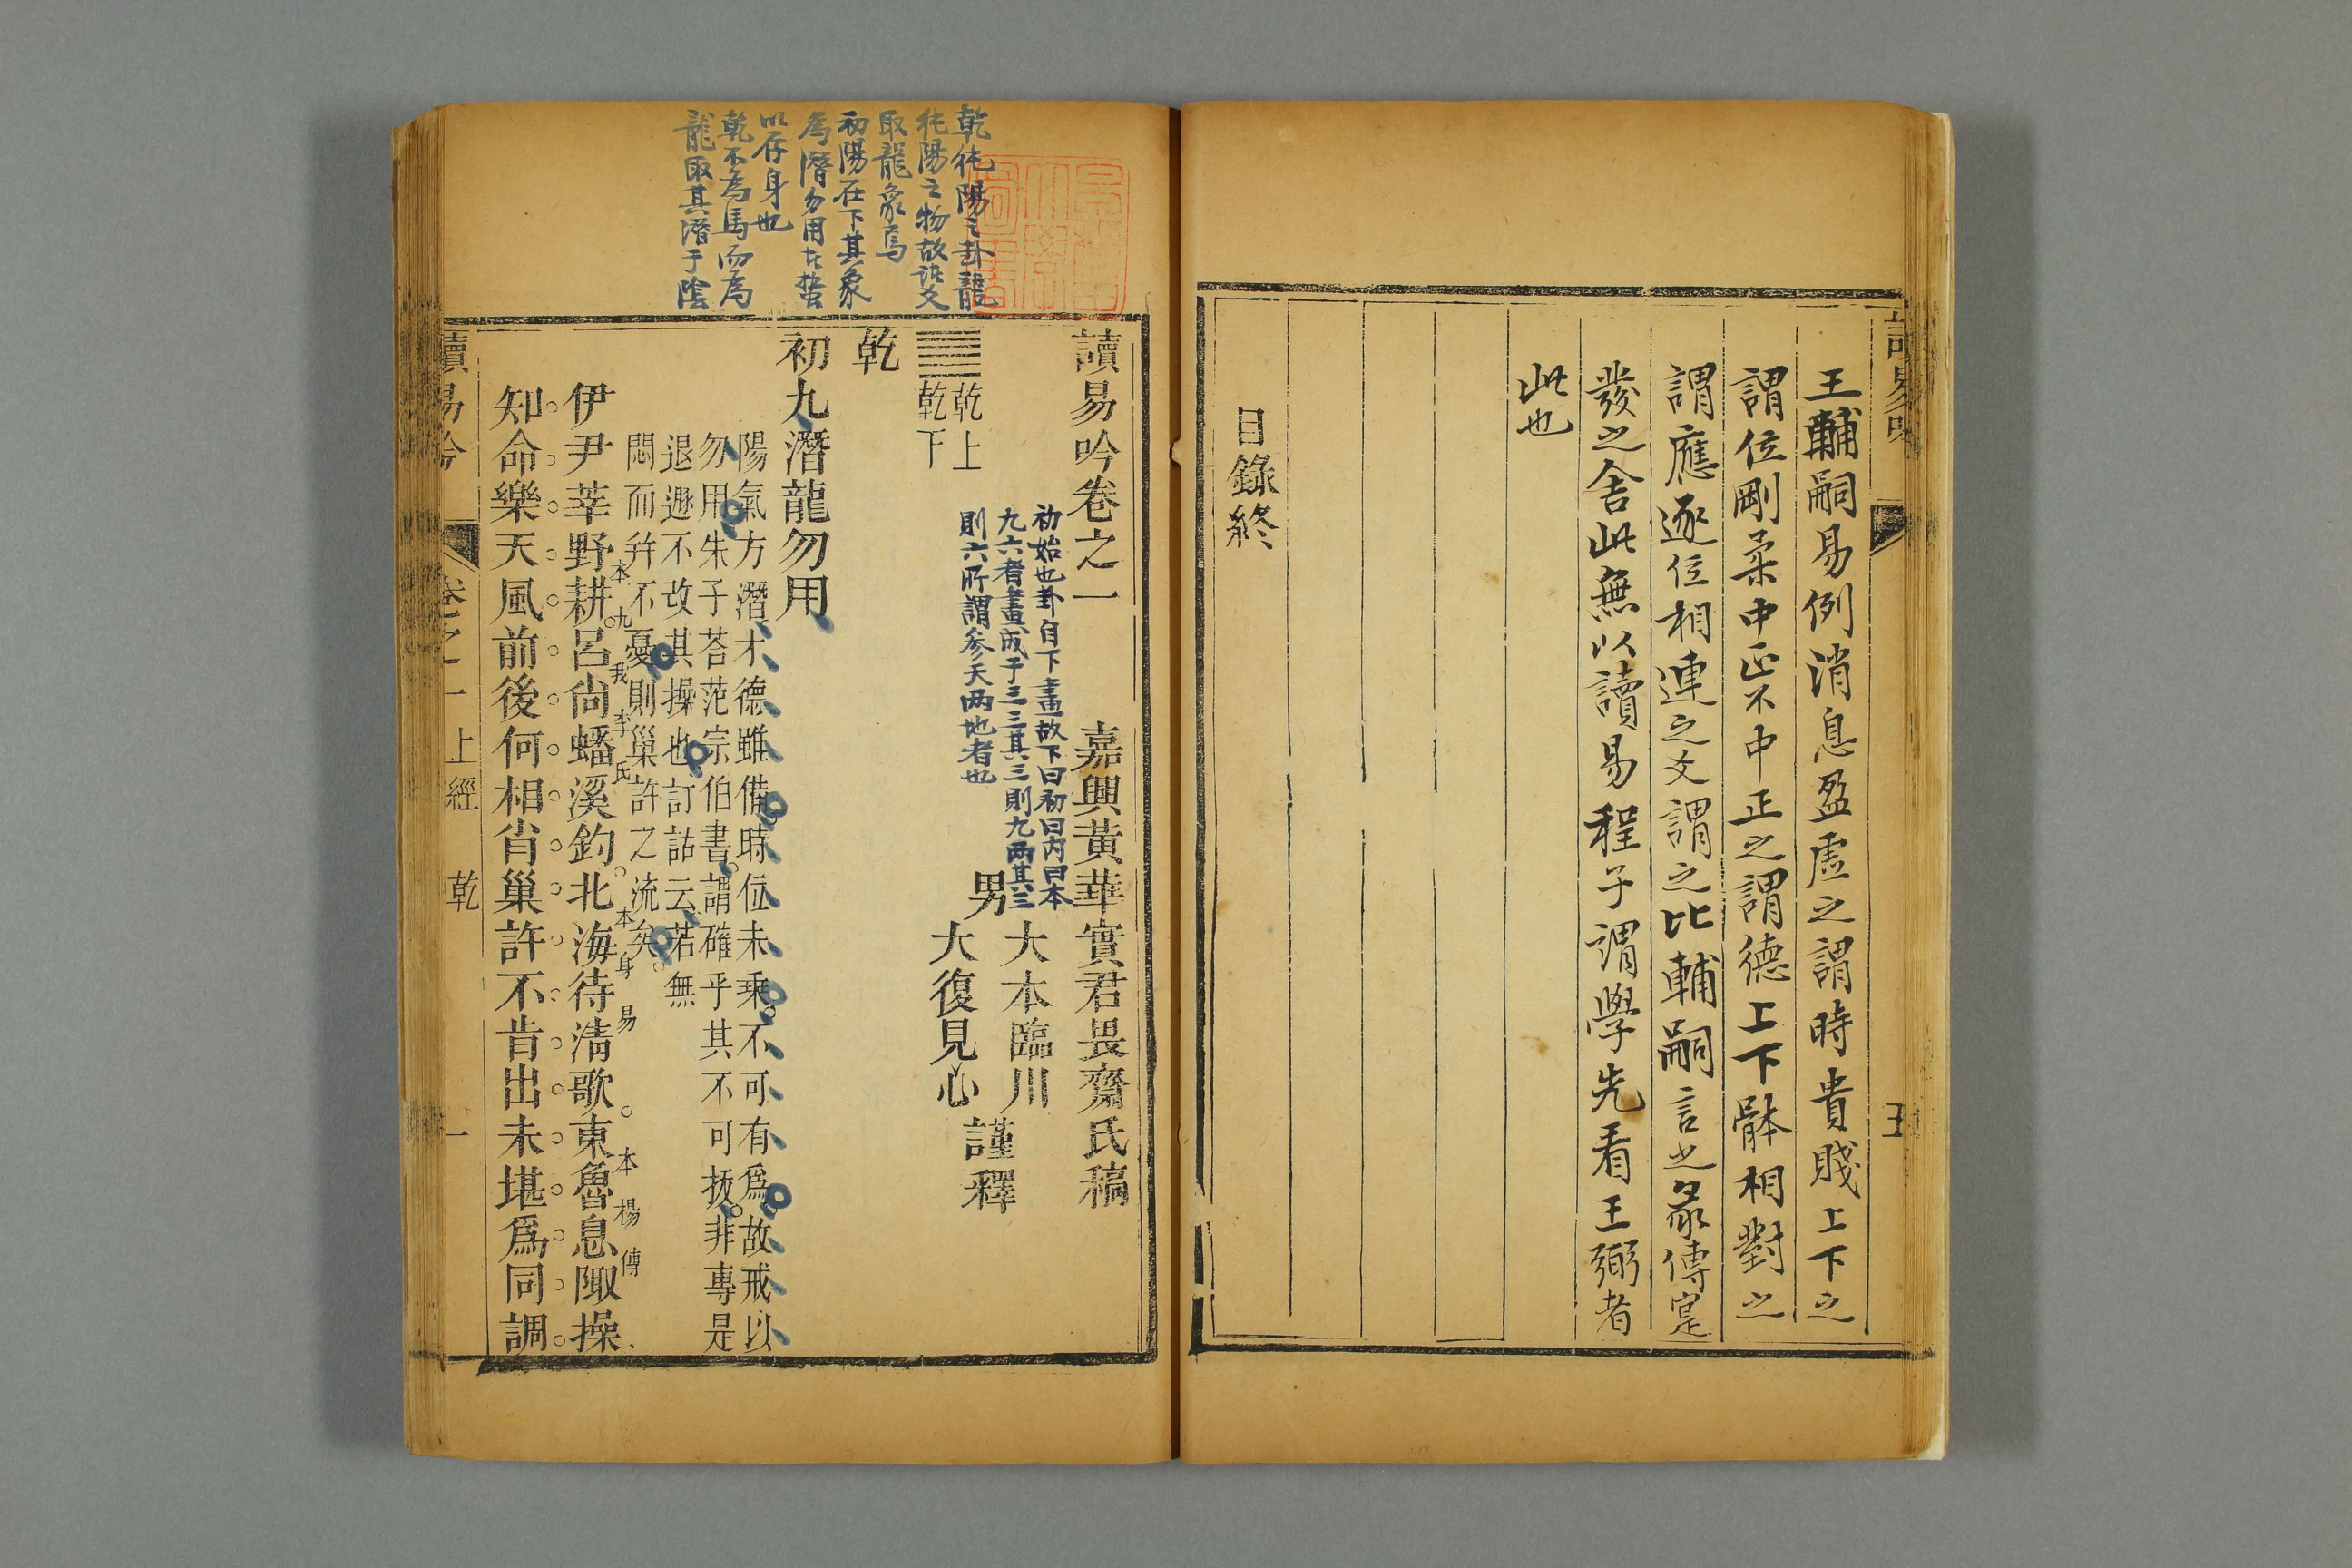 王輔嗣易例消息盈虛之謂時貴賤上下之
謂位剛柔中正不中正之謂德上下骵相對之
謂應逐位相連之爻謂之比輔嗣言之彖傳寔
發之舍此無以讀易程子謂學先看王弼者
此也
目錄終
五
讀易吟卷之一
嘉興黃華實君畏齋氏稿
男
大本臨川
大復見心
謹釋
初始也卦自下畫故下曰初曰內曰本
九六者畫成于三三其三則九兩其三
則六所謂參天两地者也
乾上
乾下
乾
初九潛龍勿用
陽氣方潛才德雖備時位未乘不可有爲故戒以
勿用朱子荅范宗伯書謂確乎其不可拔非專是
退遯不改其操也訂詁云若無
悶而并不憂則巢許之流矣
伊尹莘野耕呂尙蟠溪釣北海待淸歌東魯息陬操
本九我李氏本身易本楊傳
知命樂天風前後何相肖巢許不肯出未堪爲同調
乾純陽之卦龍
純陽之物故諸爻
取龍象焉
初陽在下其象
為潛勿用在蟄
以存身也
乾不為馬而為
龍取其潛于陰
讀易吟
卷之一
上經
乾
一